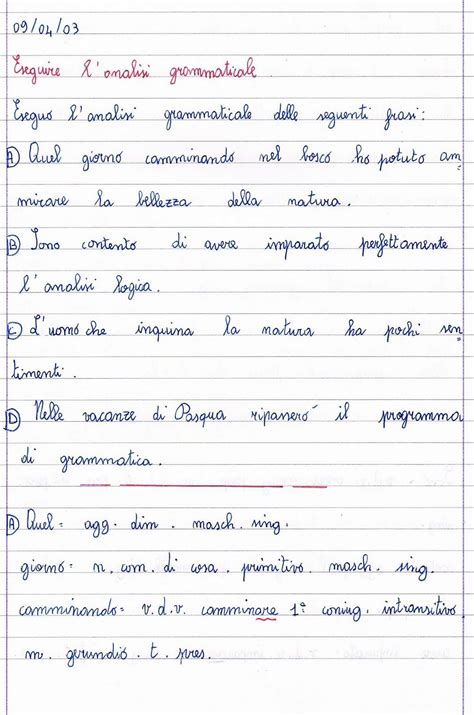 09/04/03
Eseguire l'analisi grammaticale
Eseguo l'analisi grammaticale delle seguenti frasi:
A Quel giorno camminando nel bosco ho potuto am
mirare la bellezza della natura.
B Sono contento di avere imparato perfettamente
l'analisi logica.
C L'uomo che inquina la natura ha pochi sen
timenti.
D Nelle vacanze di Pasqua ripasserò il programma
di grammatica.
A Quel= agg. dim. masch. sing.
giorno= n. com. di cosa. primitivo. masch. sing.
camminando= v.d.v. camminare 1ª coniug. intransitivo
m. gerundio. t. pres.